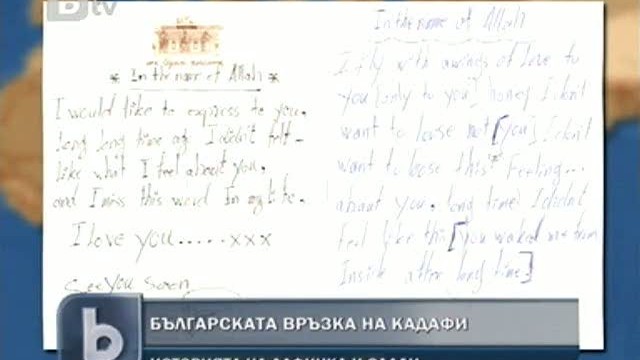 bTV
* In the name of Allah *
I would like to express to you.
long long time ag I didn't felt
like what I feel about you.
and I miss this word In my
I love you.....xxx
See You Soon
In the name of Allah
I fly with awings of love to
you [only to you] honey I don't
want to loose not [you] I don't
want to loose this Feeling...
about you. long time I didn't
feel like this [you waked me from
Inside after long time.]
b
БЪЛГАРСКАТА ВРЪЗКА НА КАДАФИ
ИСТОРИЯТА НА